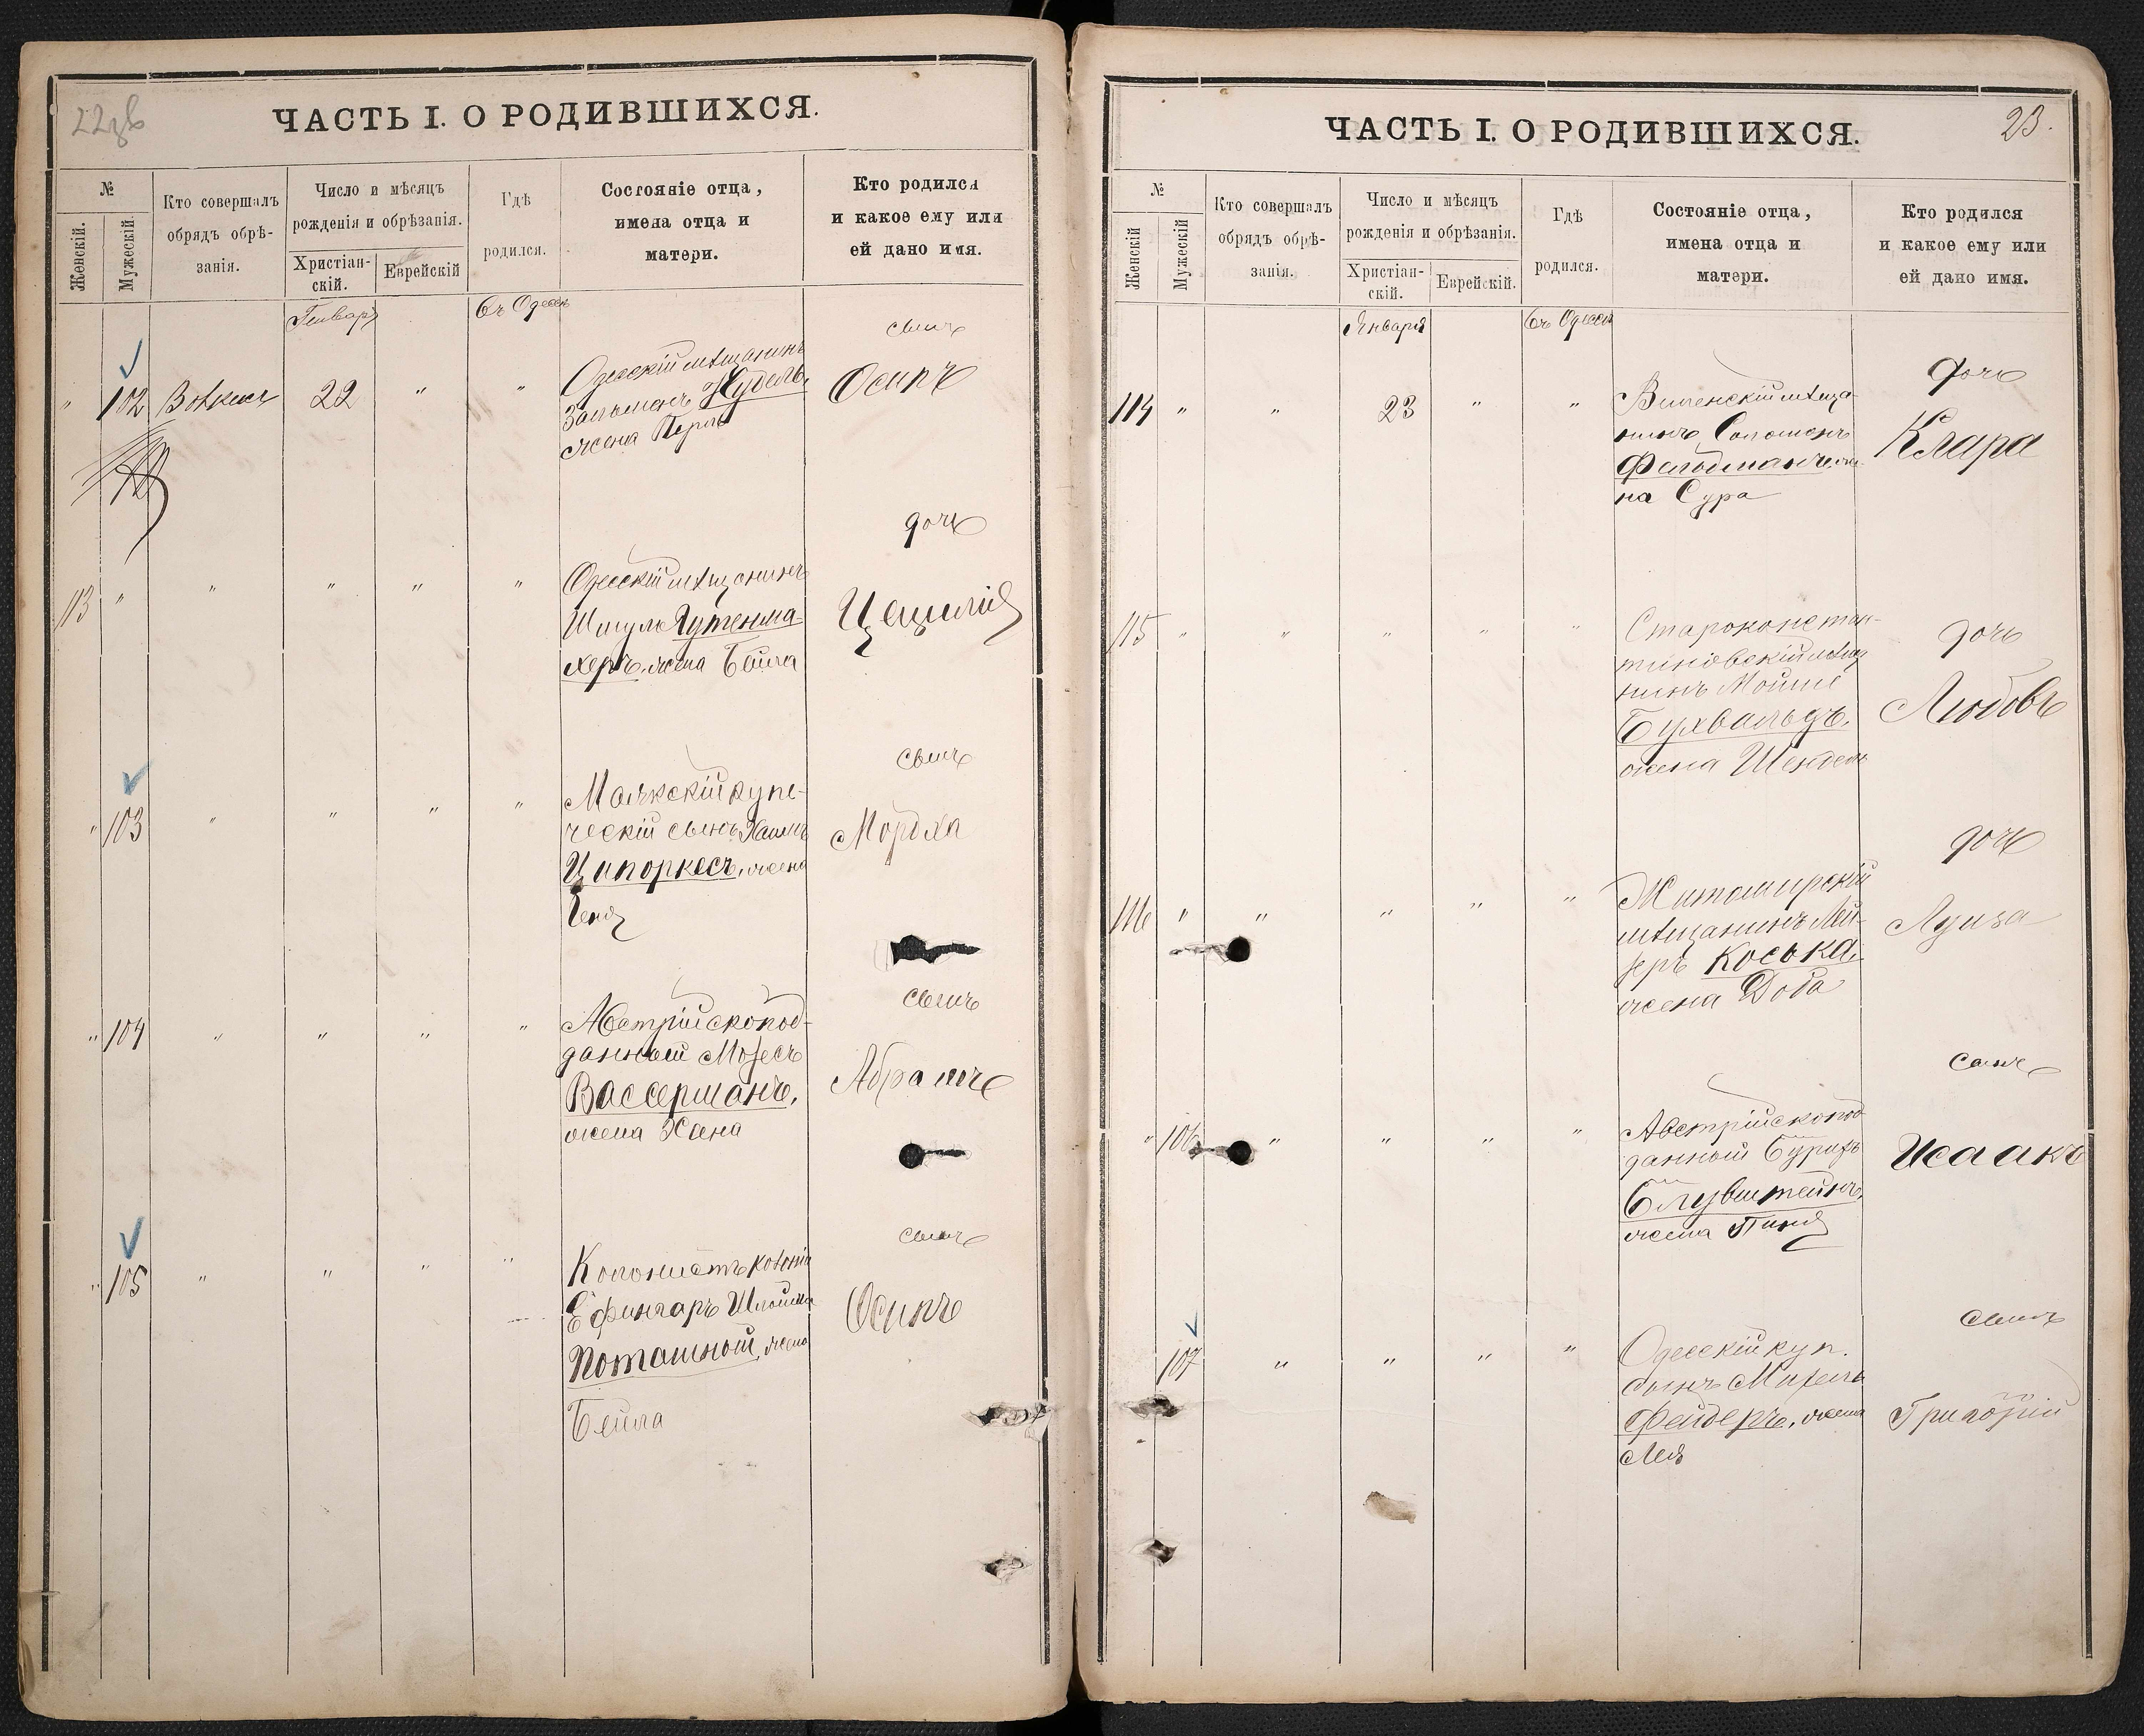 22 об
ЧАСТЬ I. О РОДИВШИХСЯ.
№
Женскій.
Мужескій
Кто совершалъ
обрядъ обрѣ-
занія.
Число и мѣсяцъ
рожденія и обрѣзанія.
Христіан-
скій.
Еврейскій
Гдѣ
родился.
Состояніе отца,
имена отца и
матери.
Кто родился
и какое ему или
ей дано имя.
Генваря
въ Одессѣ
" 102
22 " "
Одесскій мѣщанинъ
Зальманъ Нудель,
жена Перля
сынъ
Осипъ
113 " " " " "
Одесскій мѣщанинъ
херъ, жена Бейла
дочь
Цецилія
" 103 " " " "
Маякскій купе-
ческій сынъ Хаимъ
Ципоркесъ, жена
Геня
сынъ
Мордха
" 104 " " " "
Австрійскопод-
данный Мозесъ
Вассерманъ,
жена Хана
сынъ
Абрамъ
" 105 " " " "
Колонистъ колоніи
Ефингаръ Шлойма
Поташный, жена
Бейла
сынъ
Осипъ
23.
ЧАСТЬ I. О РОДИВШИХСЯ.
№
Женскій
Мужескій
Кто совершалъ
обрядъ обрѣ-
занія.
Число и мѣсяцъ
рожденія и обрѣзанія.
Христіан-
скій.
Еврейскій.
Гдѣ
родился.
Состояніе отца,
имена отца и
матери.
Кто родился
и какое ему или
ей дано имя.
Января
въ Одессѣ
114 " " 23 " "
Виленскій мѣща-
нинъ Соломонъ
Фельдманъ, же-
на Сура
дочь
Клара
115 " " " " "
Староконстан-
тиновскій мѣща
нинъ Мойше
Бухвальдъ,
жена Шендель
дочь
Любовь
116 " " " " "
Житомирскій
мѣщанинъ Лей-
зеръ Коська,
жена Доба
дочь
Луиза
" 106 " " " "
Австрійскопод
данный
жена Пиня
сынъ
Исаакъ
107 " " " "
Одесскій куп.
сынъ
Фейдеръ, жена
Лея
сынъ
Григорій